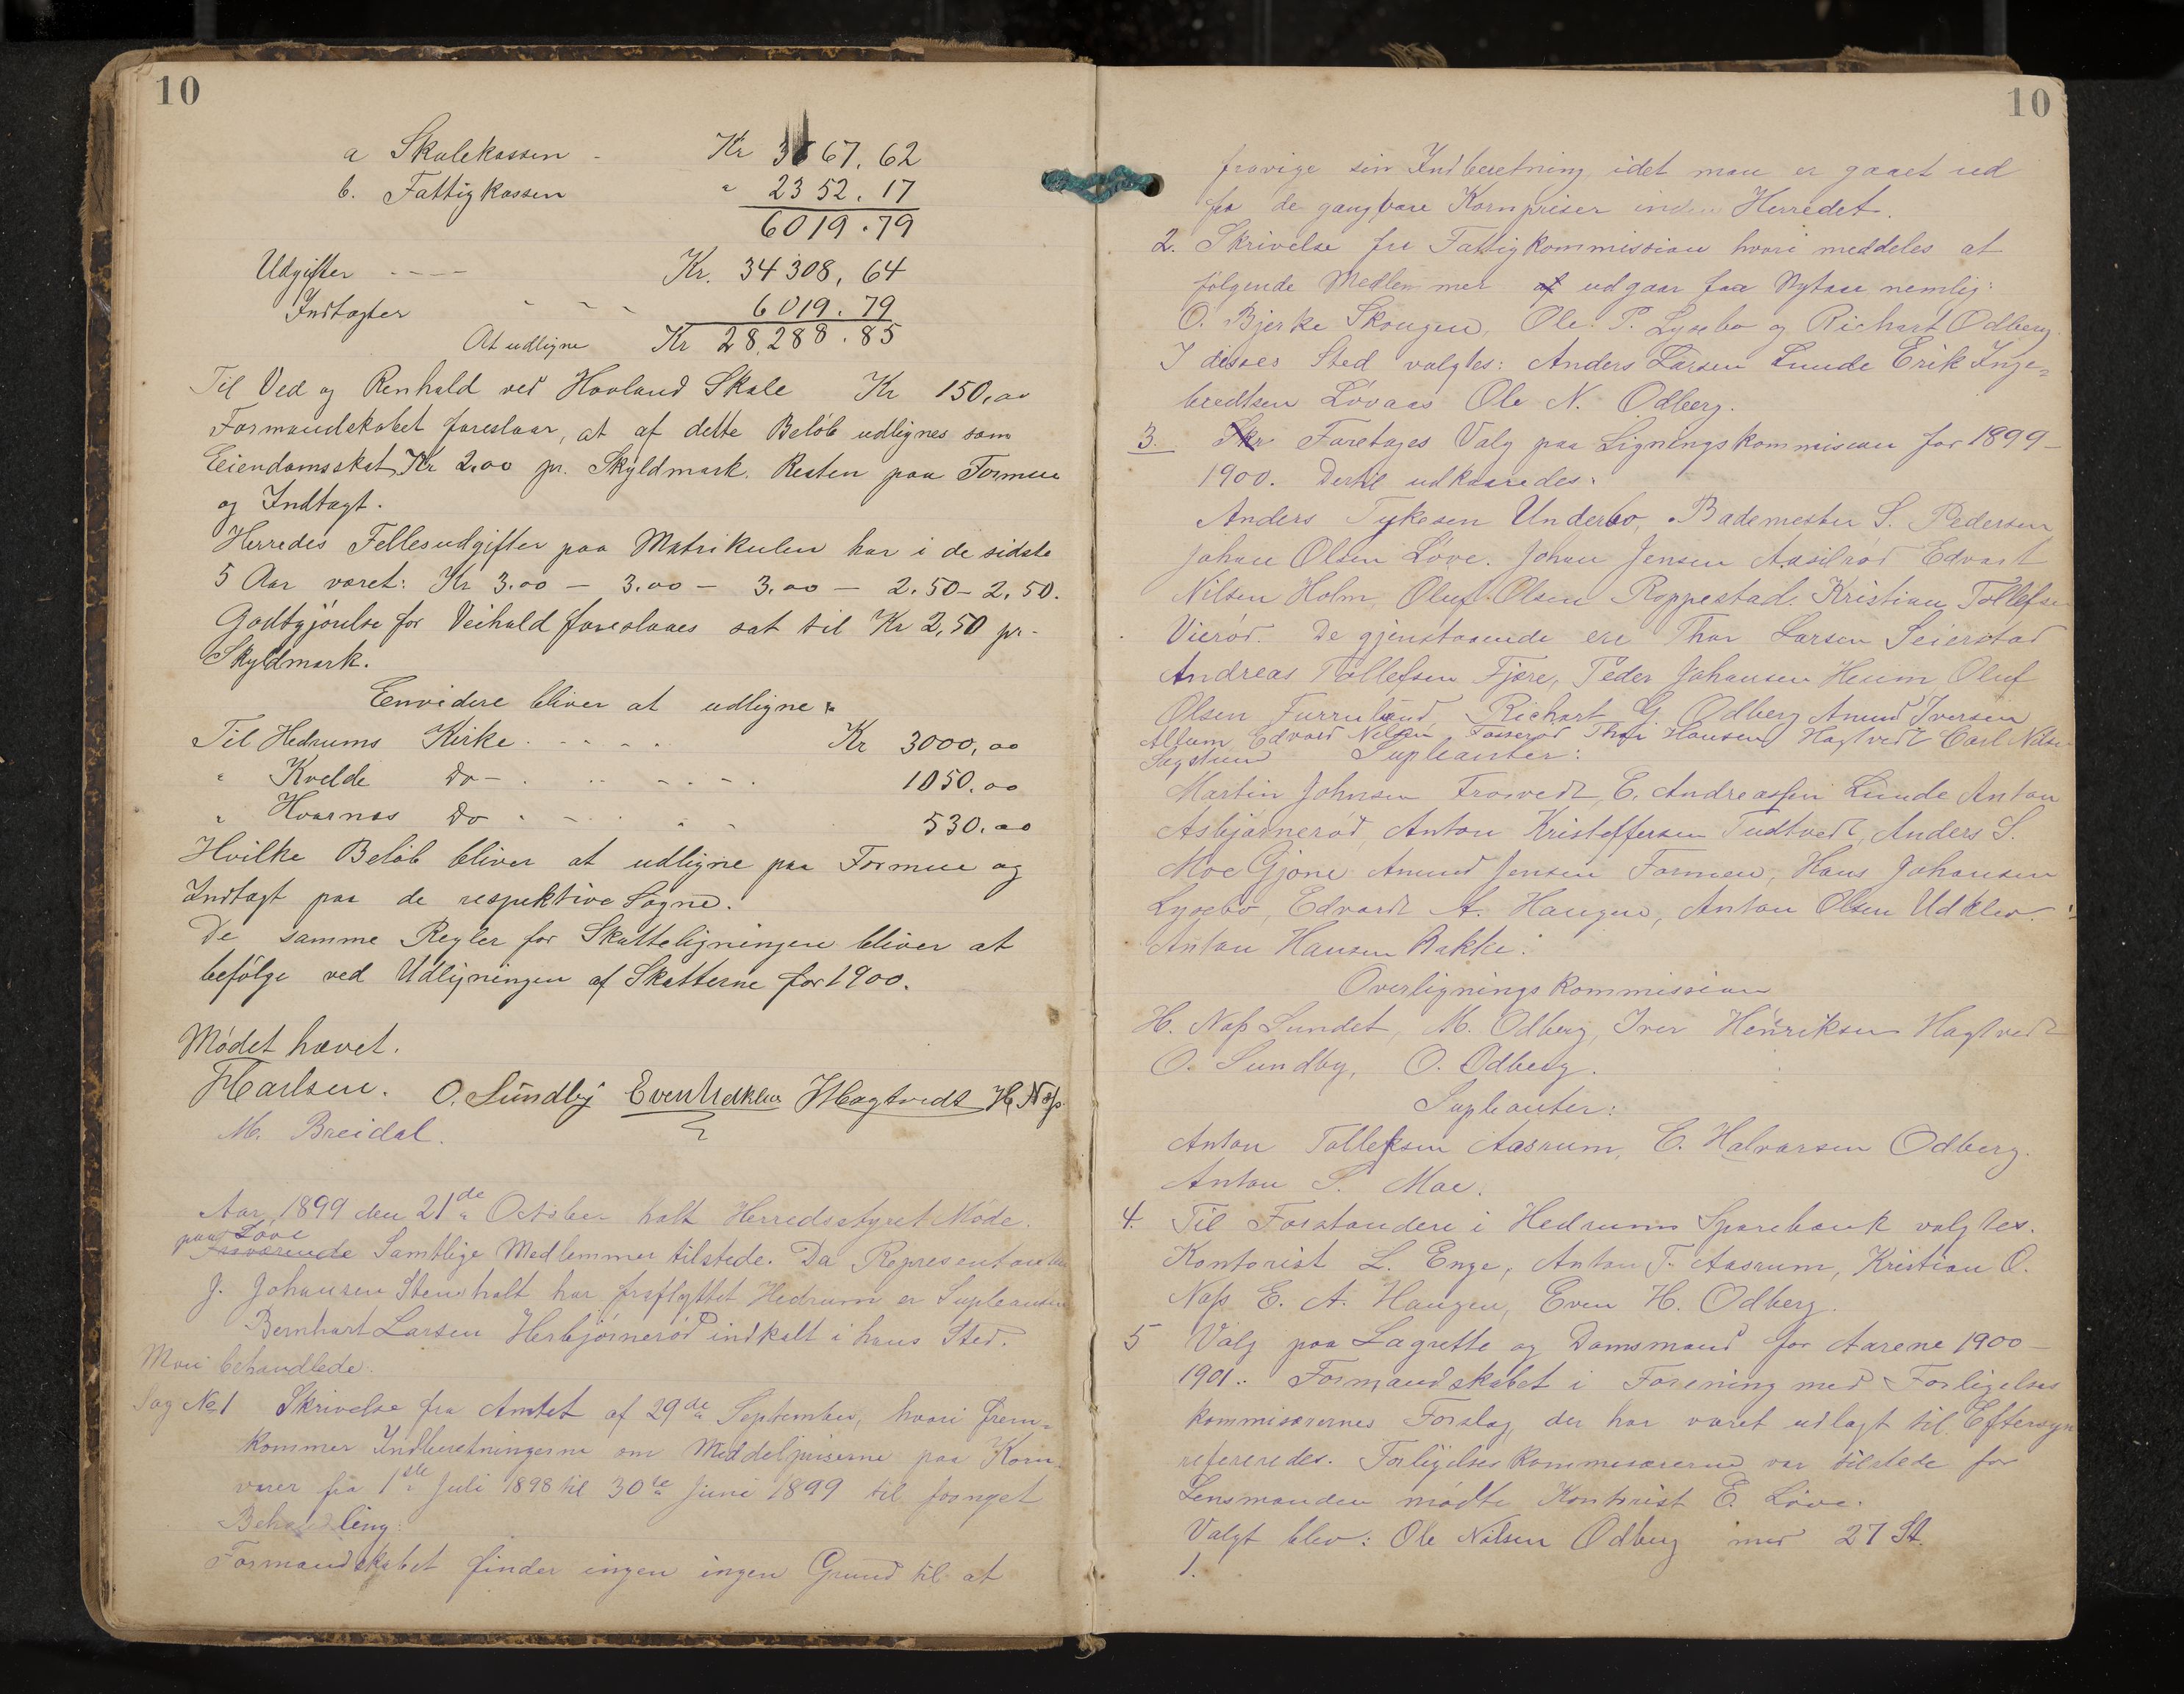 10
a Skolekassen - Kr 3667,62
b. Fattigkassen " 2352.17
6019.79
Udgifter - - - - Kr. 34308,64
Indtægter - - - 6019.79
At udligne Kr 28,288.85
Til Ved og Renhold ved Hovland Skole Kr 150,00
Formandskabet foreslaar, at af dette Beløb udlignes som
Eiendomsskat Kr 2,00 pr. Skyldmark. Resten paa Formue
og Indtægt.
Herredes Fellesudgifter paa Matrikulen har i de sidste
5 Aar været: Kr 3.00 - 3.00 - 3.00 - 2.50 - 2.50.
Godtgjörelse for Veihold foreslaaes sat til Kr 2,50 pr.
Skyldmark.
Envidere bliver at udligne:
Til Hedrums Kirke - - - - Kr 3000,00
" Kvelde Do - . . . - - - 1050.00
" Hvarnes Do . - . . - - 530.00
Hvilke Beløb bliver at udligne paa Formue og
Indtægt paa de respektive Sogne.
De samme Regler for Skatteligningen bliver at
befölge ved Udligningen af Skatterne for 1900.
Mödet hævet.
O. Sundby Even Udklev Hagtvedt H. Næss
M. Breidal.
Aar 1899 den 21de October holt Herredsstyret Möde.
paa Löve
Samtlige Medlemmer tilstede. Da Representanten
J. Johansen Stensholt har fraflyttet Hedrum er Supleanten
Bernhart Larsen Herbjörnerød indkalt i hans Sted.
Man behandlede:
Sag No 1 Skrivelse fra Amtet af 29de September, hvori frem-
kommer Indberetningerne om Middelpriserne paa Korn-
varer fra 1ste Juli 1898 til 30te Juni 1899 til foranget
Behandling:
Formandskabet finder ingen ingen Grund til at
10
fravige sin Indberetning idet man er gaaet ud
fra de gangbare Kornpriser inden Herredet.
2. Skrivelse fra Fattigkommission hvori meddeles at
følgende Medlemmer af udgaar fra Nytaar nemlig:
O. Bjerke Skougen, Ole P. Lysebo og Richart Odberg.
I disses Sted valgtes: Anders Larsen Lunde Erik Inge-
bredtsen Lövaas Ole N. Odberg.
3. Skr Foretages Valg paa Ligningskommission for 1899-
1900. Dertil udkaaredes:
Anders Tykesen Underbo, Bademester S. Pedersen
Johan Olsen Löve. Johan Jensen Aasilröd Edvart
Nilsen Holm, Oluf Olsen Roppestad. Kristian Tollefsen
Vieröd. De gjenstaaende ere Thor Larsen Seierstad
Andreas Tollefsen Fjære, Peder Johansen Heum Oluf
Olsen Furulund, Richart G. Odberg Amund Iversen
Allum, Edvard Nilsen Thor Hansen Hagtvedt Carl Nilsen
Supleanter:
Martin Johnsen Trosvedt, E. Andreassen Lunde Anton
Asbjørnerød, Anton Kristoffersen Tudtvedt, Anders S.
Moe Gjöne Amund Jensen Farmen, Hans Johansen
Lysebo, Edvardt A. Haugen, Anton Olsen Udklev.
Anton Hansen Bakke.
Overlignings Kommission
H. Næss Sundet, M. Odberg, Iver Henriksen Hagtvedt
O. Sundby, O. Odberg.
Supleanter:
Anton Tollefsen Aasrum, C. Halvorsen Odberg.
Anton S. Moe.
4. Til Forstandere i Hedrums Sparebank valgtes.
Kontorist L. Enge, Anton T. Aasrum, Kristian O.
Næss E. A. Haugen, Even H. Odberg.
5 Valg paa Lagrette og Domsmænd for Aarene 1900-
1901. Formandskabet i Forening med Forligelses
kommisærernes Forslag, der har været udlagt til Eftersyn
refereredes. Forligelseskommisærerne var tilstede for
Lensmanden mødte Kontorist E. Löve.
Valgt blev: Ole Nilsen Odberg med 27 St.
1.